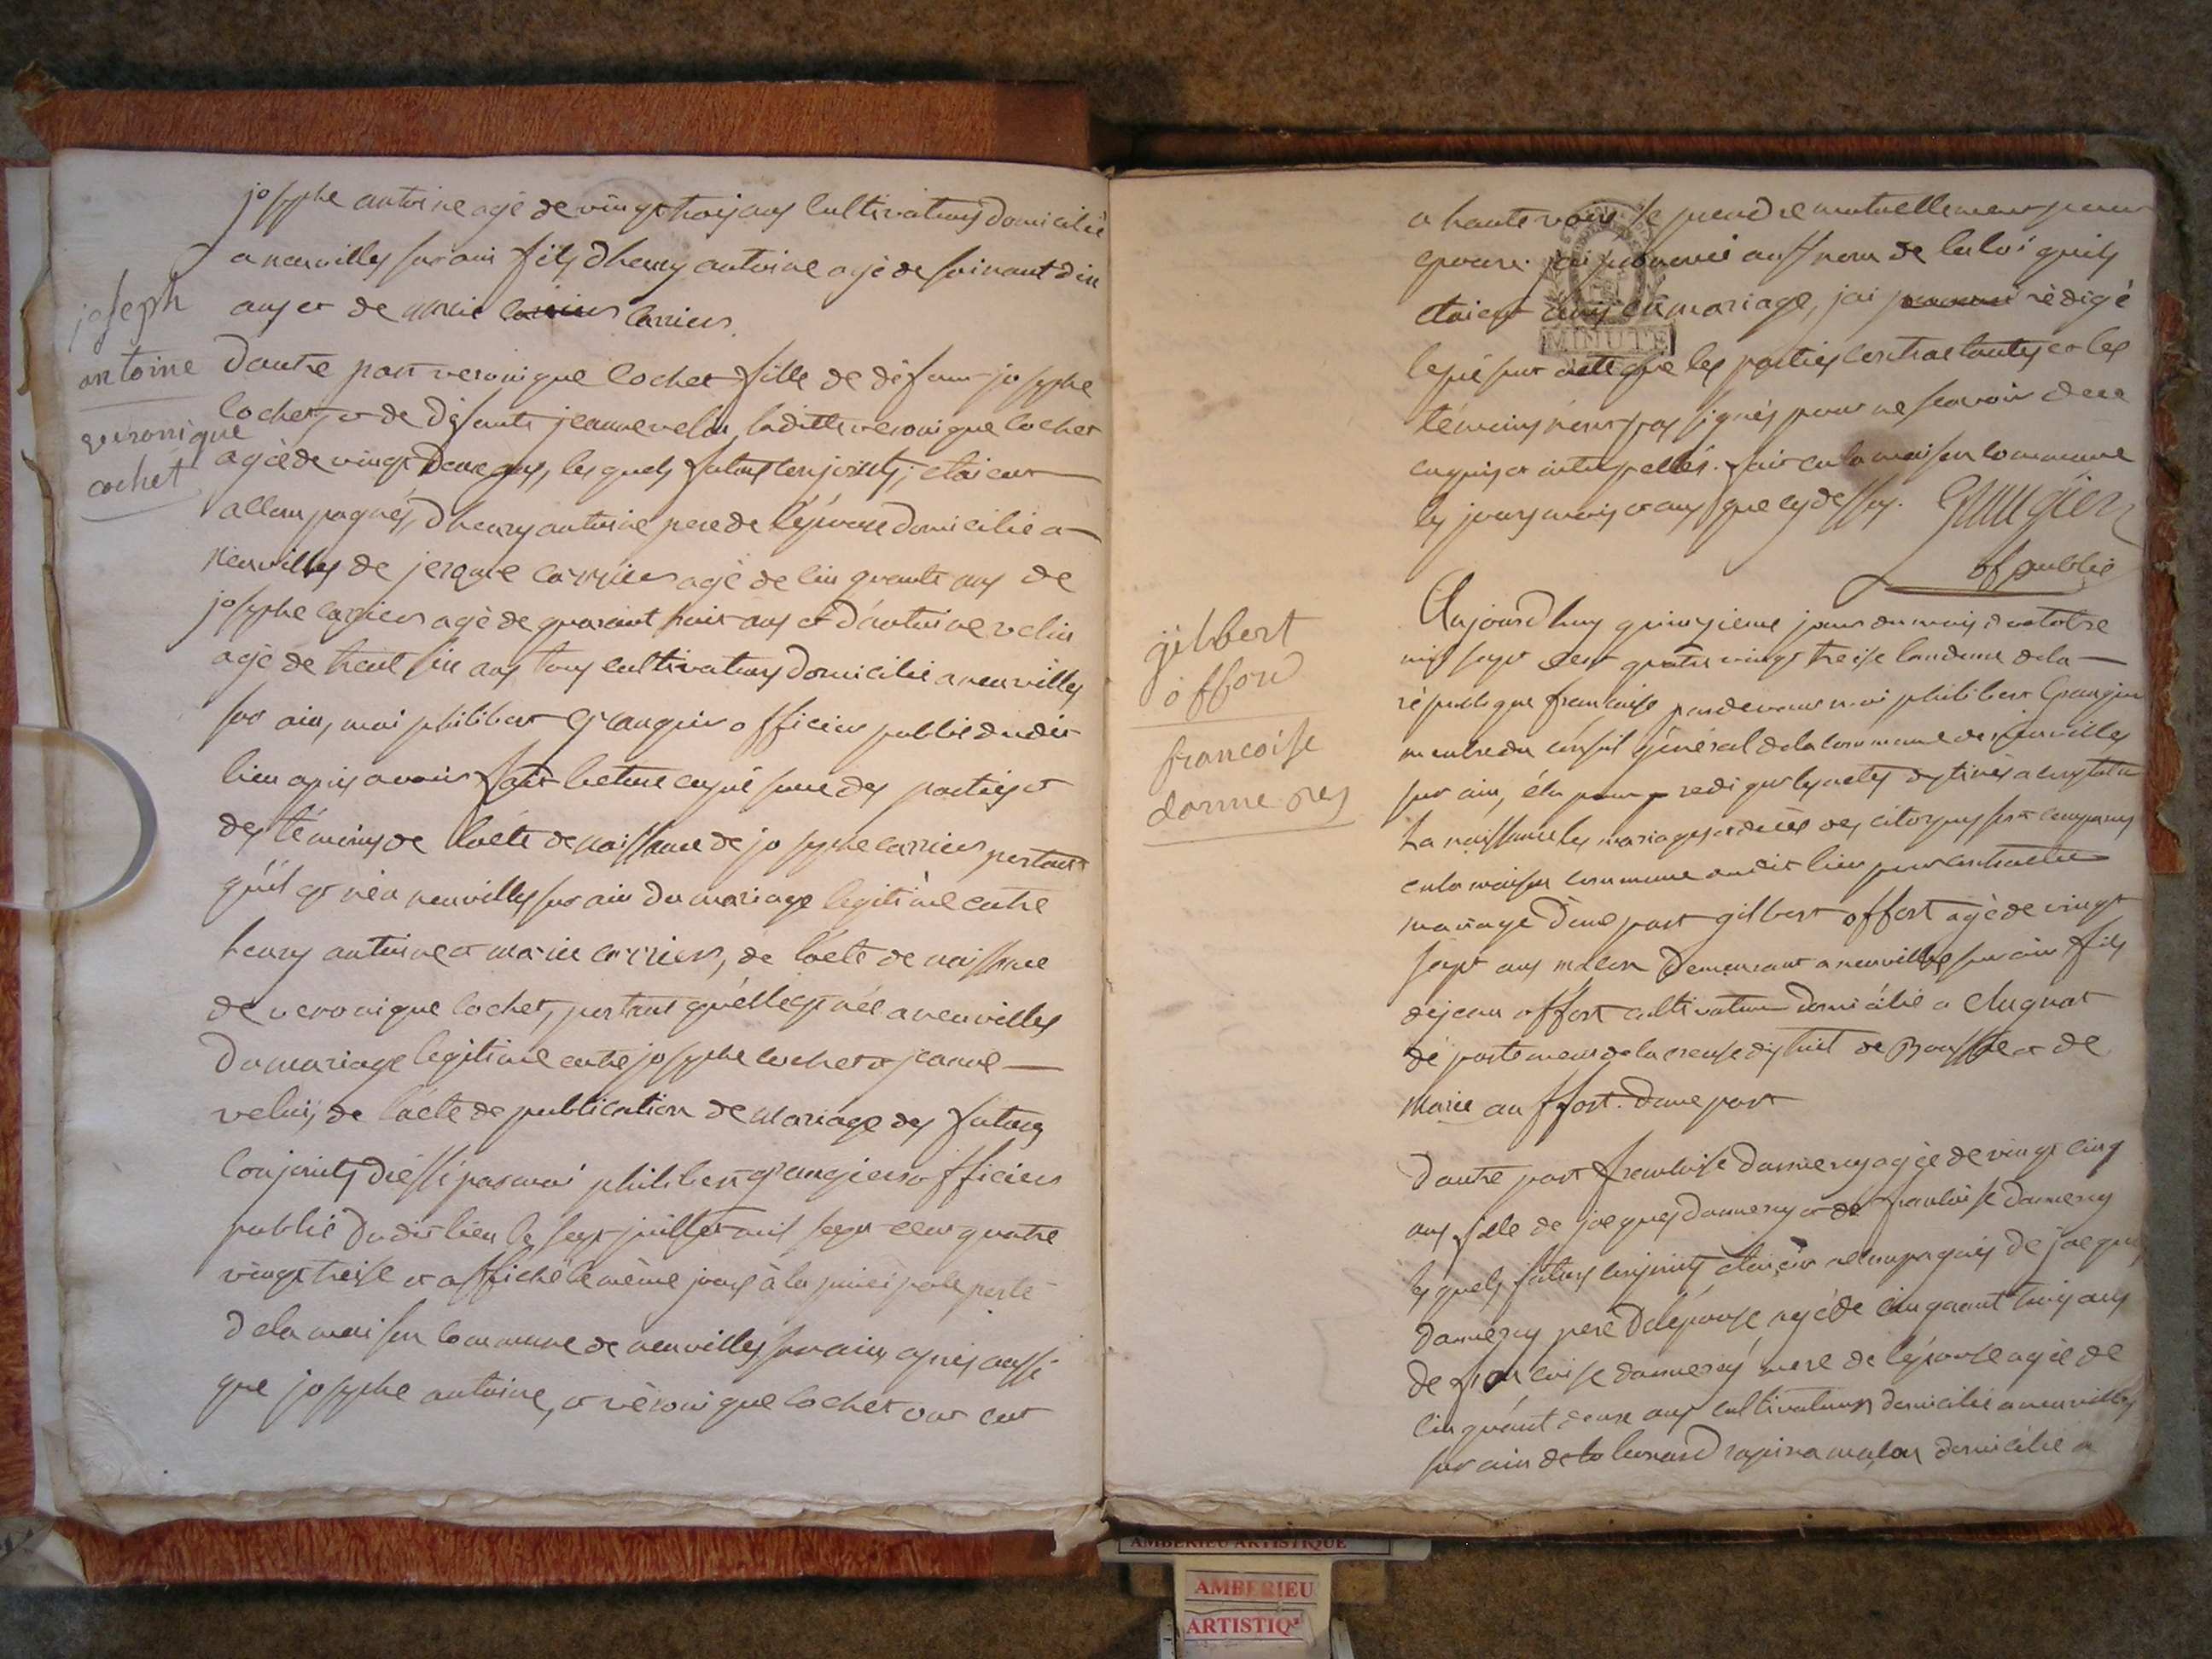 josephe antoine agé de vingt trois ans Cultivateurs domicilié
a neuvilles sur ain fils d'henry antoine agé de soixant dix
ans et de marie carriers carriers
joseph
antoine
veironique
cochet
Dautre part veronique Cochet fille de défunt josephe
Cochet et de défunte jeanne velin laditte veronique Cochet
agée de vingt deux ans, les quels futurs conjoints, étoient
accompagnés, d'henry antoine pere de l'épouse domicilié a
neuvilles de jerome carriers agé de cinquante ans de
josephe carriers agé de quarant huit ans et d'antoine velin
agé de trent six ans tous cultivateurs domicilié a neuvilles
sur ain, moi philibert Grangier officier public dudit
lieu apres avoir fait lecture en présence des parties et
des témoins de l'acte de naissance de josephe carriers portant
qu'il est né a neuvilles sur ain du mariage légitime entre
henry antoine et marie carriers, de l'acte de naissance
de veronique Cochet, portant qu'elle est née a neuvilles
du mariage legitime entre josephe cochet et jeanne
velin, de l'acte de publication de mariage des futurs
Conjoints dressé par moi philibert grangier officier
public dudit lieu le sept juillet mil sept cent quatre
vingt treise et affiché le même jour à la principale porte
de la maison Commune de neuvilles sur ain, apres aussi
que josephe antoine, et véronique Cochet ont eut
a haute voix se prendre mutuellement pour
epoux. j'ai prononcé au nom de la loi quils
étoient unis en mariage, j'ai rédigé
MINUTE
le présent acte que les parties contractantes et les
témoins n'ont pas signés pour ne scavoir de ce
enquis et interpellés. fait en la maison commune
les jours mois et ans que cy dessus. Grangier
of public
gilbert
offord
francoise
danneres
Aujourdhuy quinzieme jour du mois d'octobre
mil sept cent quatre vingt treise l'an deux de la
république francaise par devant moi philibert Grangier
membre du conseil général de la commune de neuvilles
sur ain, élu pour rediger les actes destinés a constater
la naissance les mariages et décès des citoyens sont comparus
en la maison commune dudit lieu pour contracter
mariage d'une part gilbert offort agé de vingt
sept ans macon demeurant a neuvilles sur ain fils
de jean offort cultivateur domicilié a Clugnat
département de la creuse district de Boussac et de
Marie auffort. d'une part
Dautre part francoise dannerey agée de vingt cinq
ans fille de jacques dannerey et de francoise dannerey
les quels futurs conjoints étoient accompagnés de jacques
dannerey pere de l'épouse agé de cinquant trois ans
de francoise dannerey mere de l'épouse agée de
cinquant deux ans cultivateurs domicilié a neuvilles
sur ain de leonard macon domicilié a
AMBERIEU ARTISTIQUE
AMBERIEU
ARTISTIQ